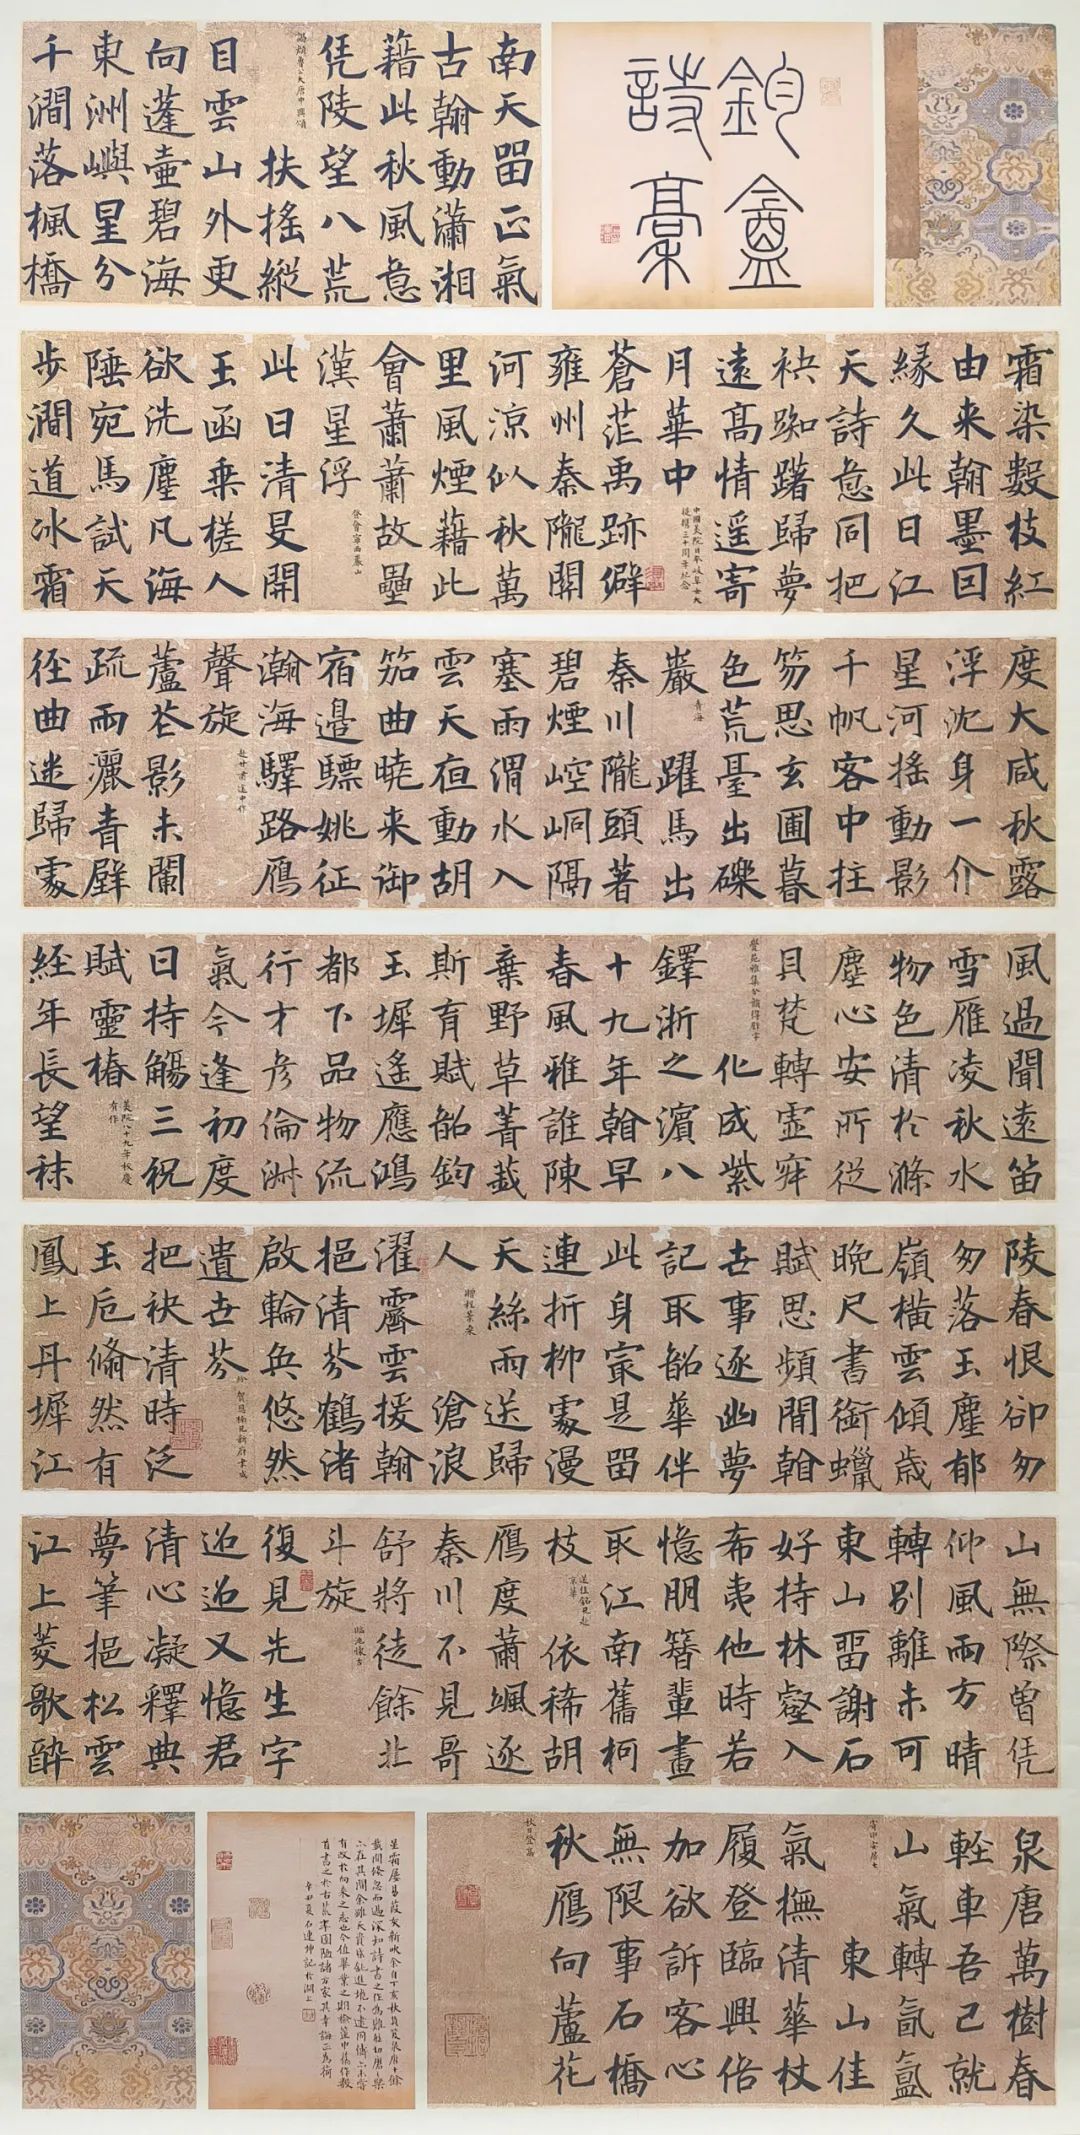 鈞盦
詩稾
南天畱正氣
古翰動瀟湘
藉此秋風意
凭陵望八荒
謁顏魯公大唐中興頌
扶搖縱
目雲山外更
向蓬壷碧海
東洲嶼星分
千澗落楓橋
霜染數枝紅
由来翰墨因
緣久此日江
天詩意同把
袂踟躇歸夢
遠高情遥寄
月華中
中國美院日本岐阜女大
提攜三十周年紀念
蒼茫禹跡僻
雍州秦隴關
河凉似秋萬
里風煙藉此
會蕭蕭故壘
漢星浮
登會寧西巖山
此日清旻開
玉函乗槎人
欲洗塵凡海
陲宛馬試天
步澗道冰霜
度大咸秋露
浮沈身一介
星河搖動影
千帆客中拄
笏思玄圃暮
色荒臺出礫
巖
青海
躍馬出
秦川隴頭著
碧煙崆峒隔
塞雨渭水入
雲天夜動胡
笳曲曉来御
宿邉驃姚征
瀚海驛路鴈
聲旋
赴甘肅道中作
蘆花影未闌
疏雨灑青壁
徑曲迷歸處
風過聞遠笛
雪雁凌秋水
物色清於滌
塵心安所從
貝梵轉虛寂
覺苑雅集分韻得
化成紫
鐸浙之濵八
十九年翰早
春風雅誰陳
棄野草菁莪
斯育賦韶鈞
玉墀遙應鴻
都下品物流
行才彦倫
氣今逢初度
日持觴三祝
賦靈椿
美院八十九年校慶
有作
経年長望秣
陵春恨卻匆
匆落玉塵郁
嶺橫雲傾歲
晩尺書銜蠟
賦思頻聞翰
世事逐幽夢
記取韶華伴
此身寂是畱
連折柳處漫
天絲雨送歸
人
贈程葉來
滄浪
濯霽雲援翰
挹清芬鶴渚
啟輪奐悠然
遺世芬
把袂清時泛
玉巵翛然有
鳳上丹墀江
山無際曾凭
仰風雨方晴
轉別離未可
東山畱謝石
好持林壑入
布夷他時若
憶朋簪輩畫
取江南舊柯
枝
依稀胡
鴈度蕭颯逐
秦川不見哥
舒將徒餘北
斗旋
臨洮懷古
復見先生字
迢迢又憶君
清心凝釋典
夢筆挹松雲
江上菱歌酔
泉唐萬樹春
軽車吾已就
山氣轉氤氳
東山佳
氣撫清華杖
履登臨興倍
加欲訴客心
無限事石橋
秋鴈向蘆花
秋日登高